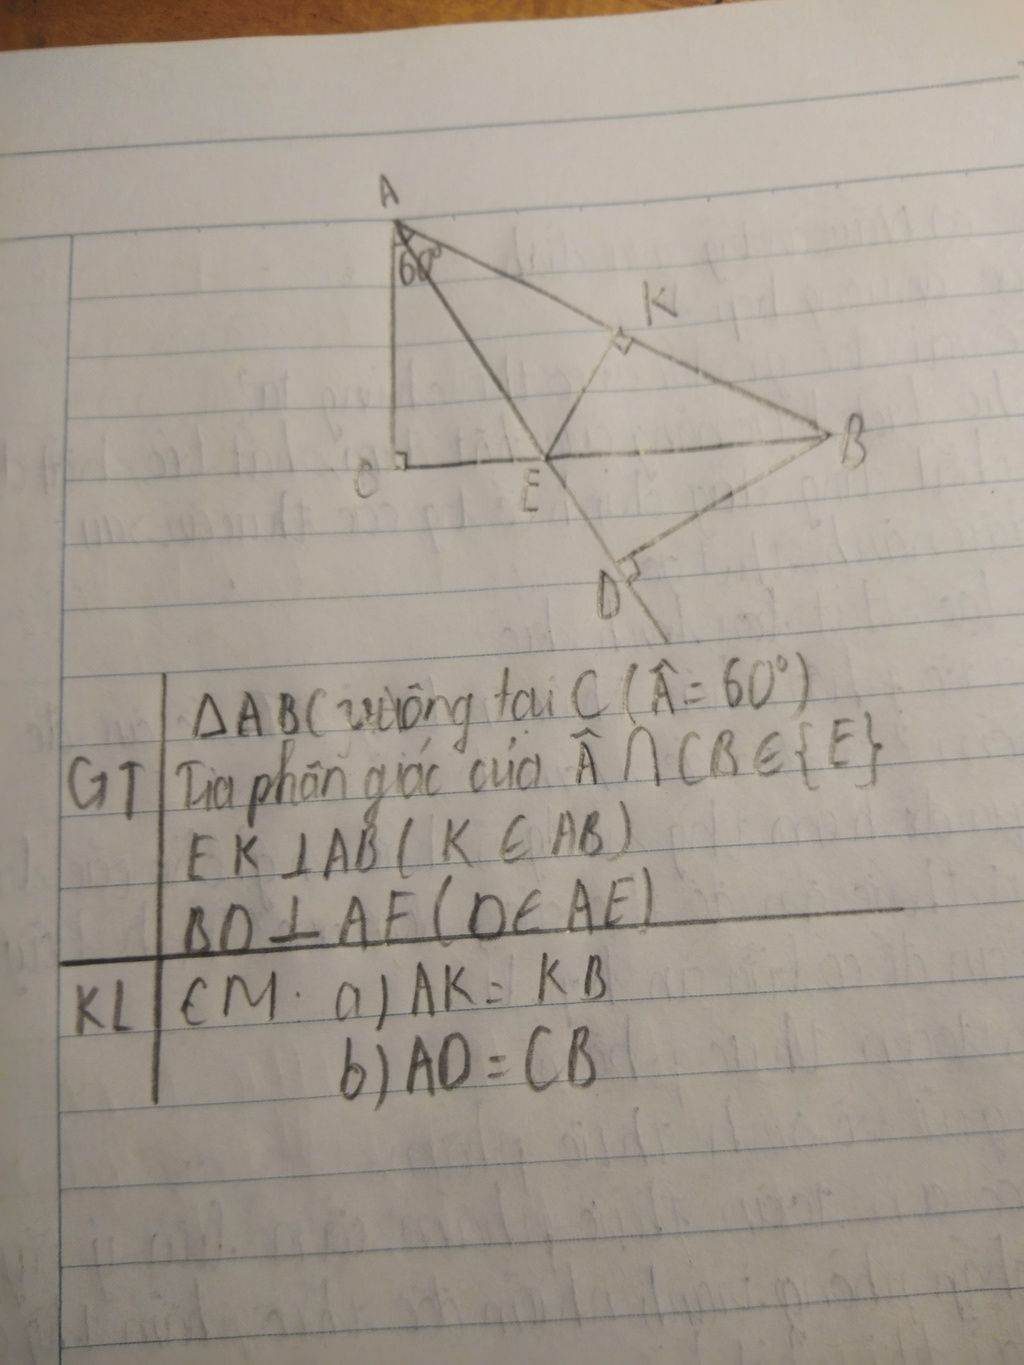 A
60°
K
C
E
B
D
GT
ΔABC vuông tại C (Â = 60°)
Tia phân giác của Â ∩ CB ∈ {E}
EK ⊥ AB ( K ∈ AB)
BD ⊥ AE (D ∈ AE)
KL
CM. a) AK = KB
b) AD = CB